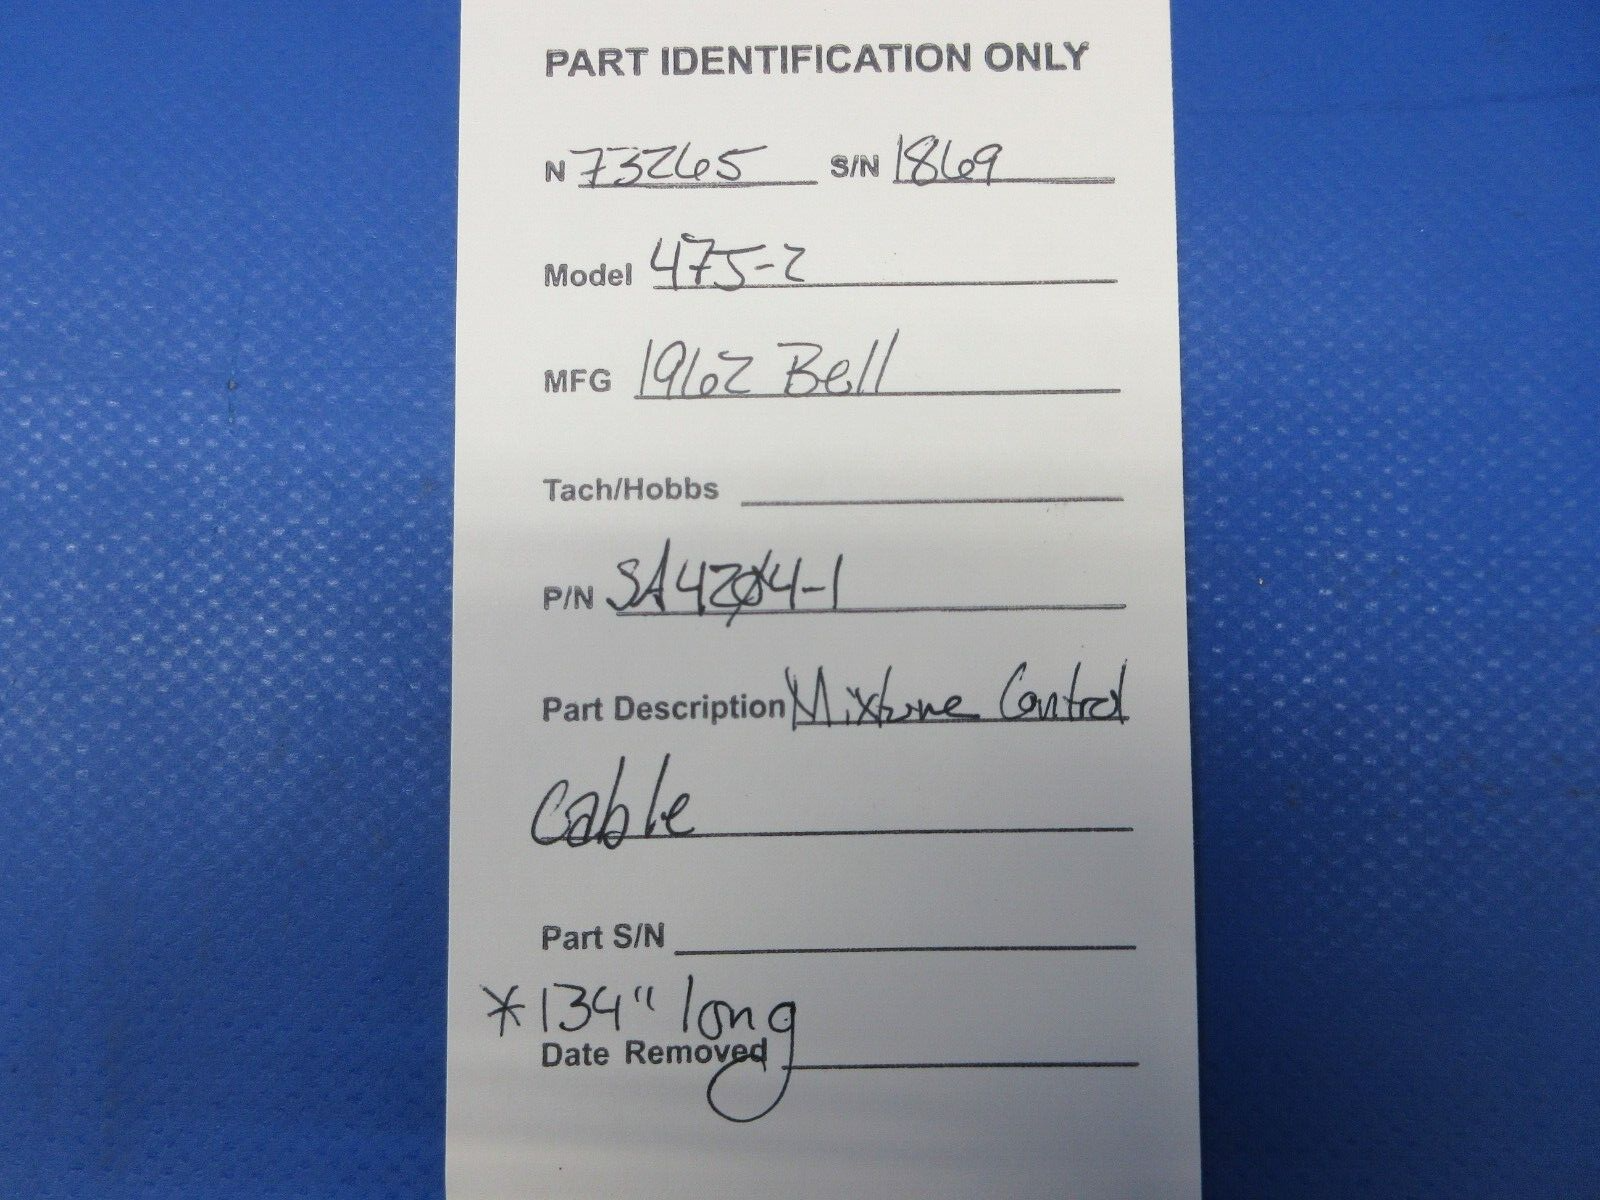 PART IDENTIFICATION ONLY
N 73265 S/N 1869
Model 47J-2
MFG 1962 Bell
Tach/Hobbs
P/N SA4204-1
Part Description Mixture Control
cable
Part S/N
*134" long
Date Removed